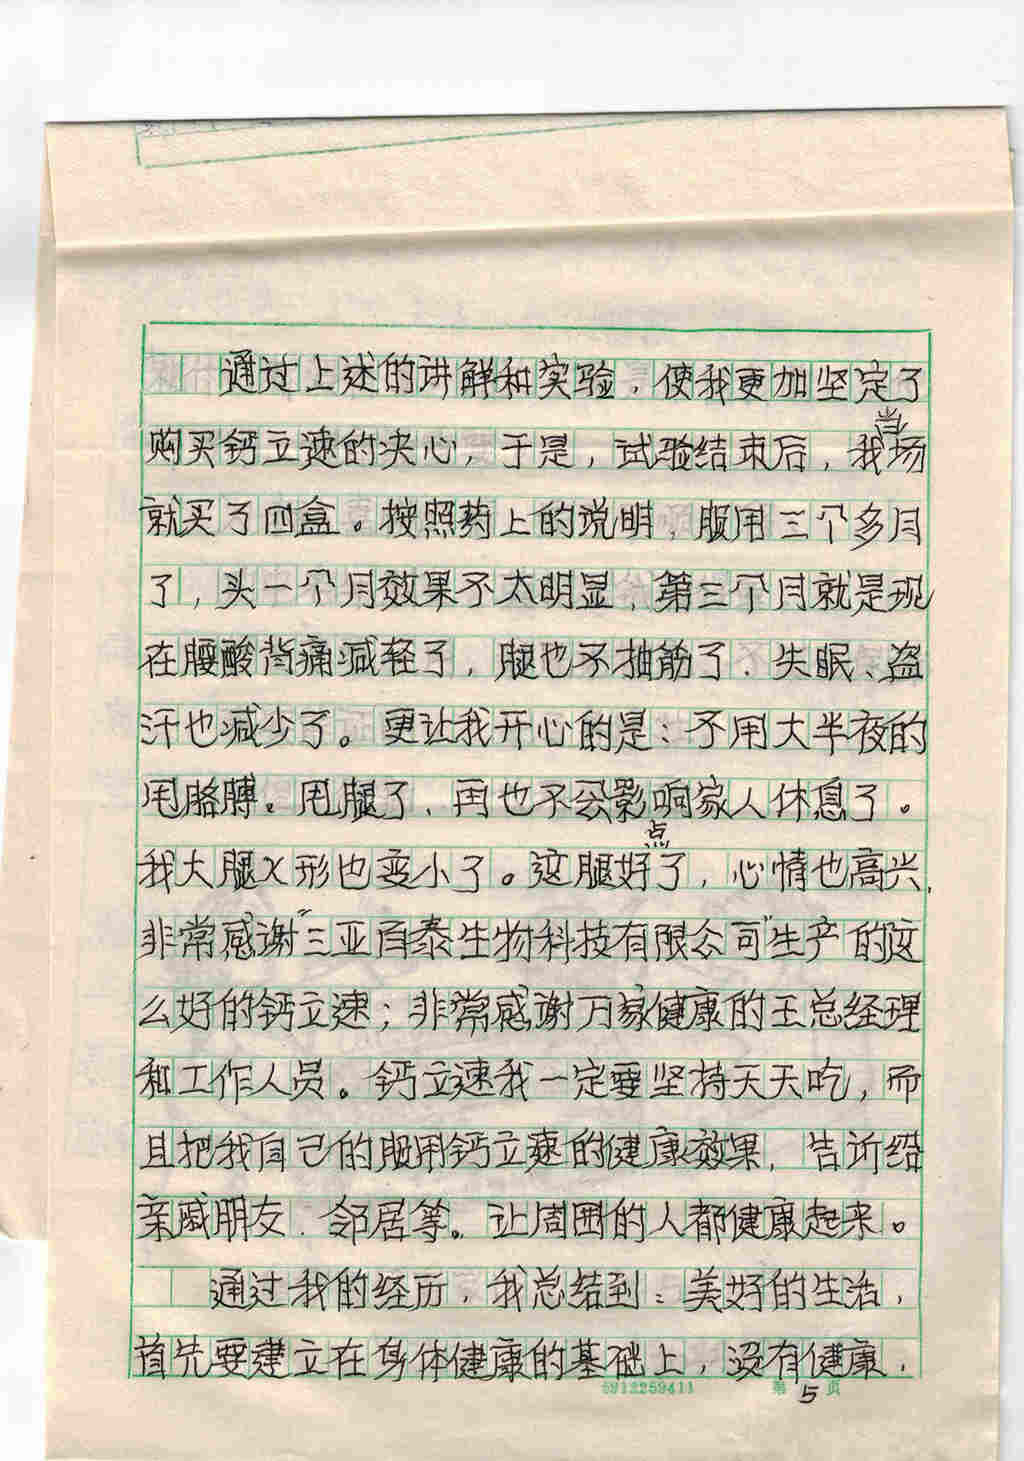 通过上述的讲解和实验，使我更加坚定了
购买钙立速的决心，于是，试验结束后，我当场
就买了四盒。按照药上的说明，服用三个多月
了，头一个月效果不太明显，第三个月就是现
在腰酸背痛减轻了，腿也不抽筋了、失眠、盗
汗也减少了。更让我开心的是：不用大半夜的
甩胳膊。甩腿了，再也不会影响家人休息了。
我大腿X形也变小了。这腿好点了，心情也高兴，
非常感谢"三亚百泰生物科技有限公司"生产的这
么好的钙立速；非常感谢万家健康的王总经理
和工作人员。钙立速我一定要坚持天天吃，而
且把我自己的服用钙立速的健康效果，告诉给
亲戚朋友、邻居等。让周围的人都健康起来。
通过我的经历，我总结到：美好的生活，
首先要建立在身体健康的基础上，没有健康，
6912259411 第5页